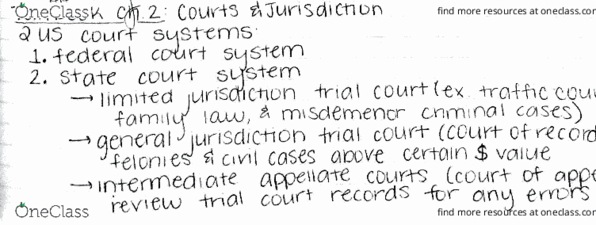 OneClass find more resources at oneclass.com
K ch 2: Courts & Jurisdiction
2 US court systems:
1. federal court system
2. state court system
→ limited jurisdiction trial court (ex. traffic cou
family law, & misdemenor criminal cases)
→ general jurisdiction trial court (court of record
felonies & civil cases above certain $ value
→ intermediate appellate courts (court of appe
review trial court records for any errors
OneClass find more resources at oneclass.com